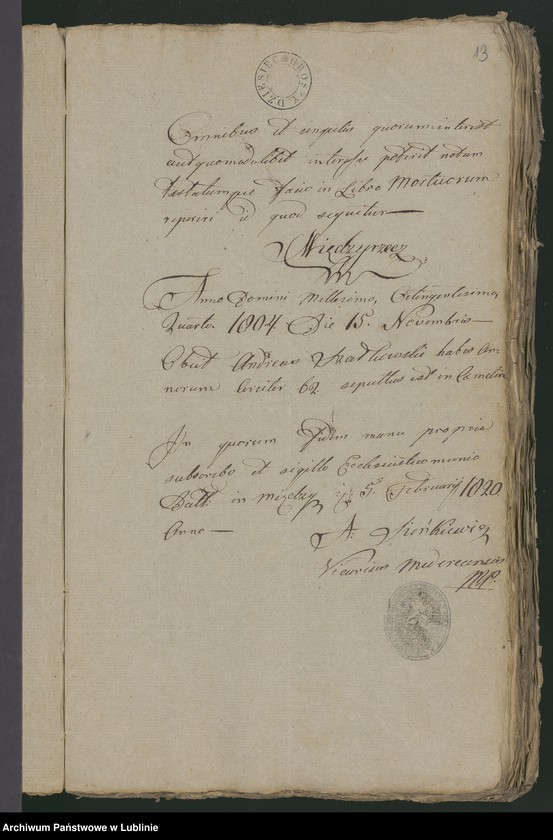 13
DZIESIĘĆ GROSZY
Omnibus et singulis quorum interest
aut quomodolibet interesse poterit notum
testatumque facio in Libro Mortuorum
reperiri id quod sequitur
Międzyrzecz
Anno Domini Millesimo, Octingentesimo,
Quarto. 1804. Die 15. Novembris
Obiit Andreas habens An-
norum Circiter 62 sepultus est in Cœmeterio
In quorum fidem manu propria
subscribo et sigillo Ecclesiæ communio
Datt. in Międzyrz 5. Februarij 1820
Anno
A. Sieńkiewicz
Vicarius
Mp.
Archiwum Państwowe w Lublinie